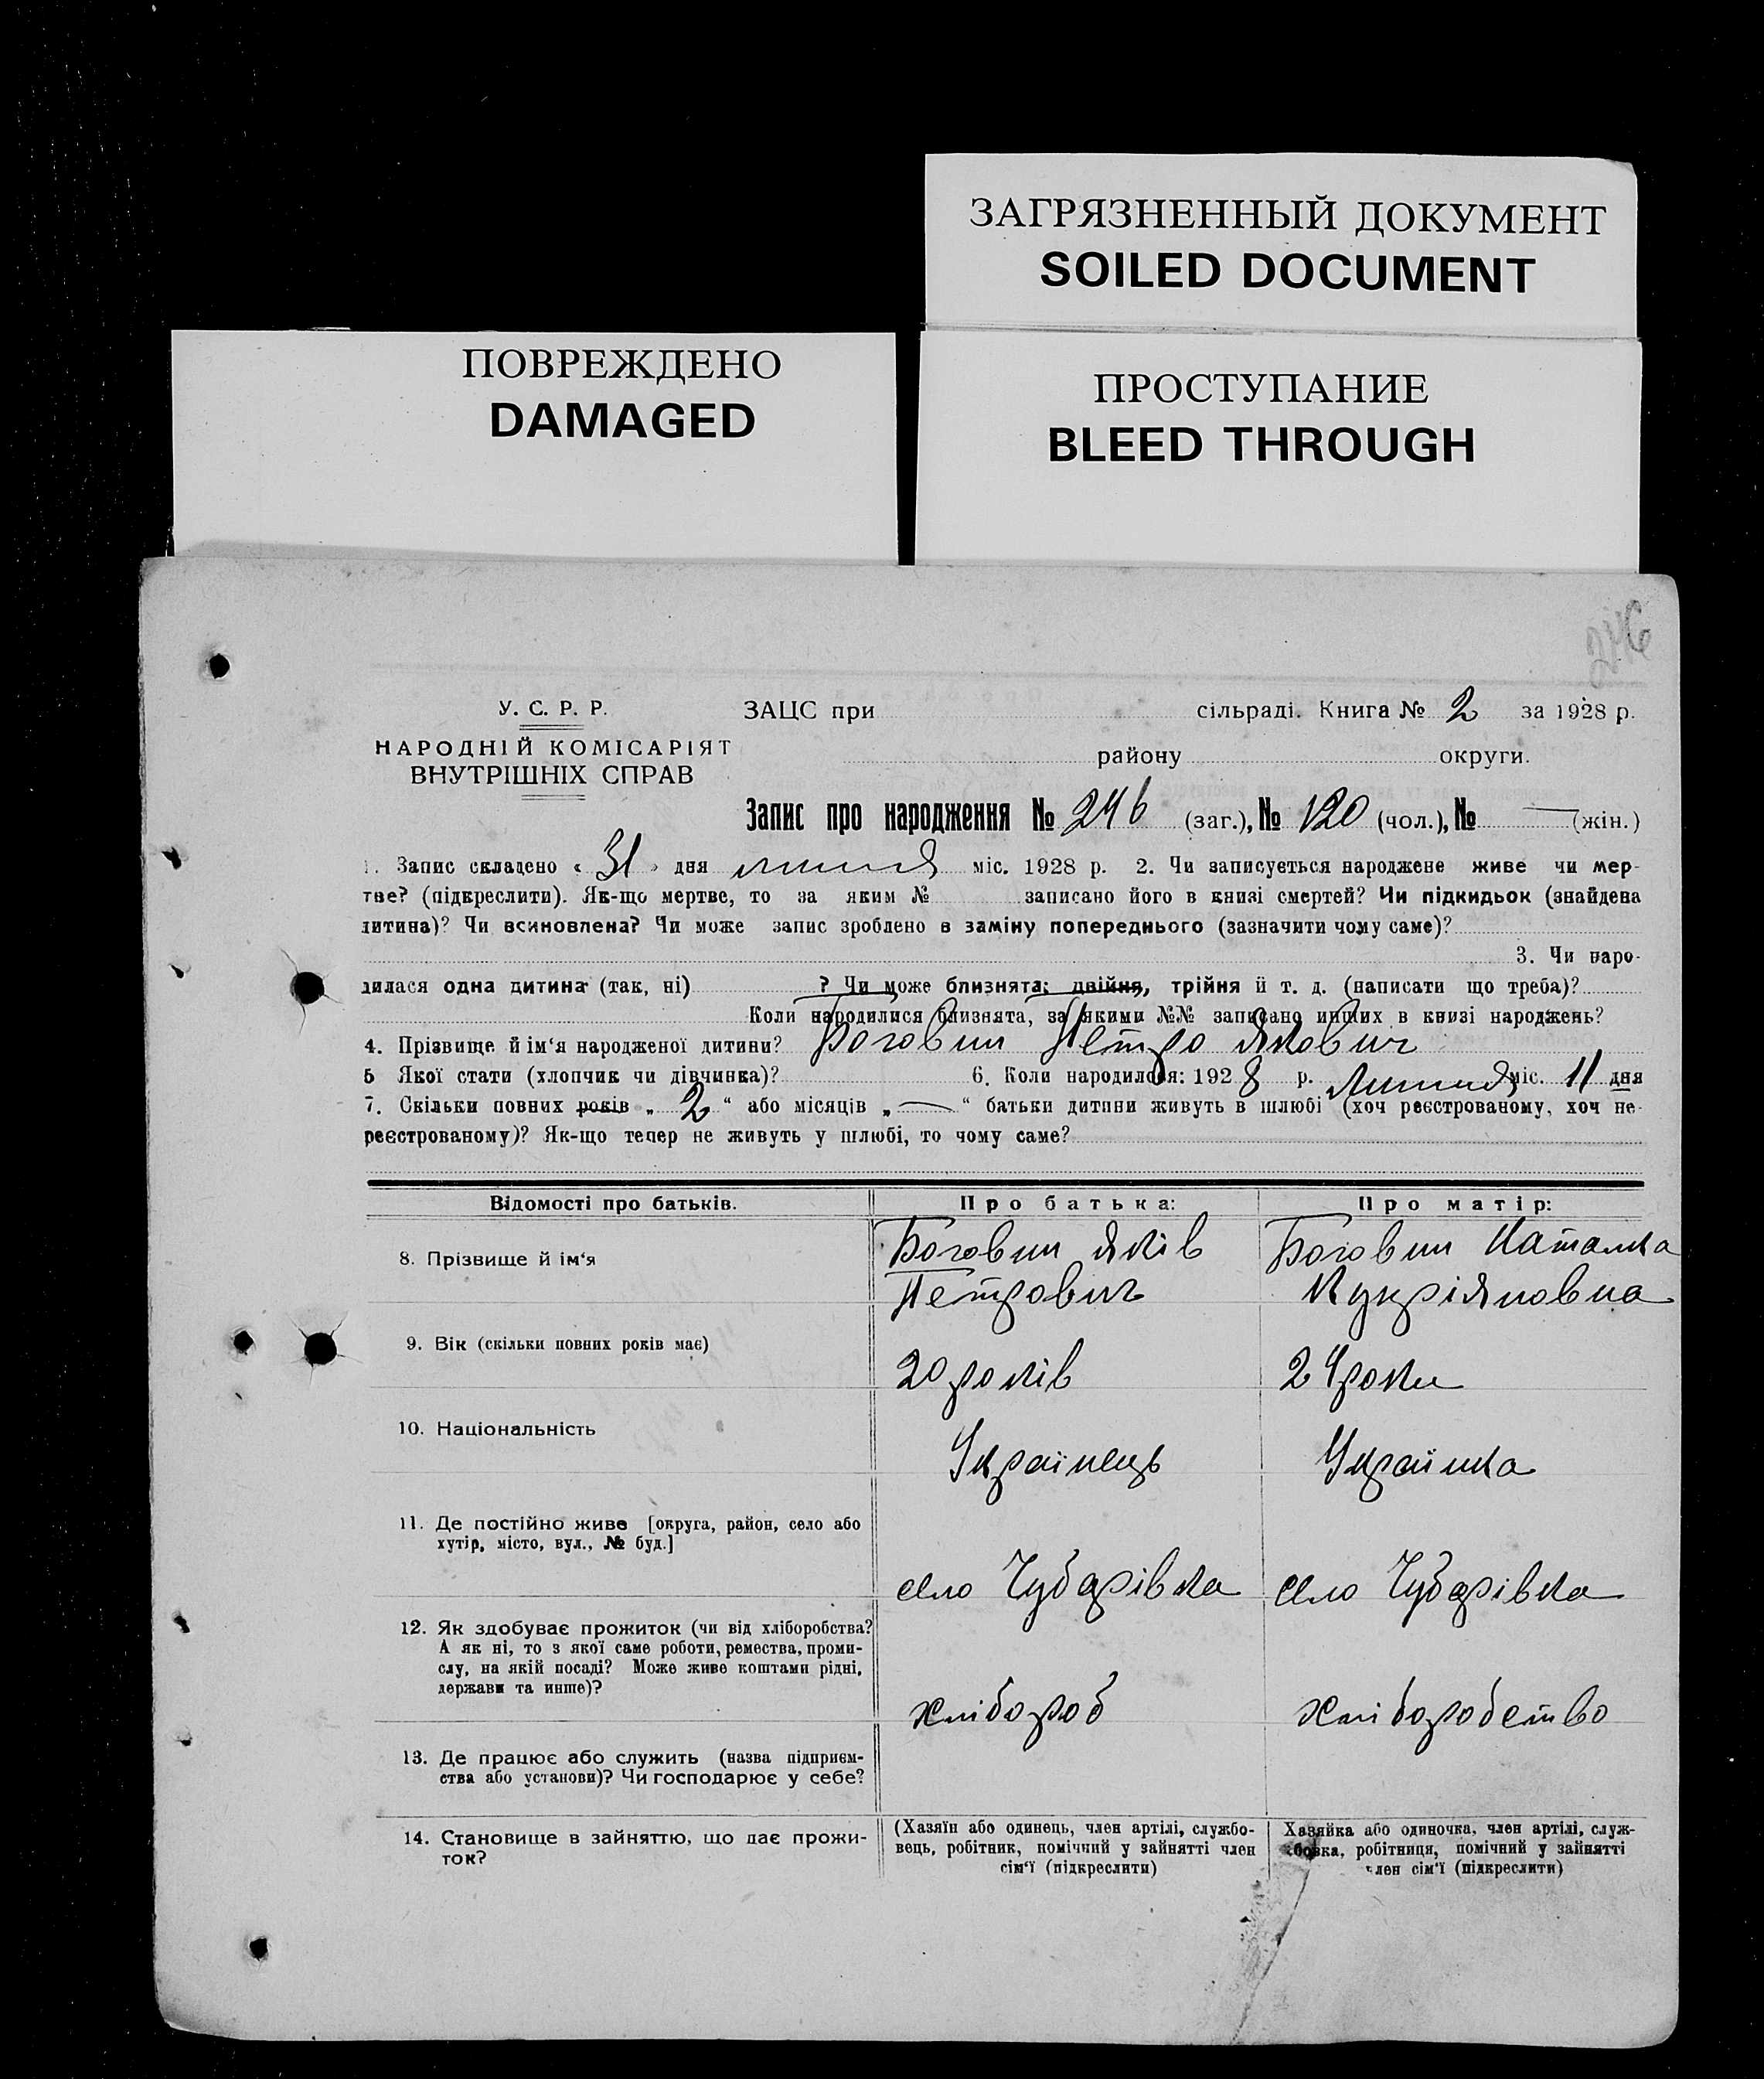 ЗАГРЯЗНЕННЫЙ ДОКУМЕНТ
SOILED DOCUMENT
ПОВРЕЖДЕНО
DAMAGED
ПРОСТУПАНИЕ
BLEED THROUGH
246
У. С. Р. Р.
НАРОДНІЙ КОМІСАРІЯТ
ВНУТРІШНІХ СПРАВ
ЗАЦС при сільраді. Книга № 2 за 1928 р.
району округи.
Запис про народження № 246 (заг.), № 120 (чол.), № — (жін.)
1. Запис складено « 31 » дня липня міс. 1928 р. 2. Чи записується народжене живе чи мер-
тве? (підкреслити). Як-що мертве, то за яким № записано його в книзі смертей? Чи підкидьок (знайдена
дитина)? Чи всиновлена? Чи може запис зроблено в заміну попереднього (зазначити чому саме)?
3. Чи наро-
дилася одна дитина (так, ні) ? Чи може близнята: двійня, трійня й т. д. (написати що треба)?
Коли народилися близнята, за якими №№ записано инших в книзі народжень?
4. Прізвище й ім‘я народженої дитини? Боговин Петро Якович
5 Якої стати (хлопчик чи дівчинка)? 6. Коли народилося: 1928 р. Липня міс. 11 дня
7. Скільки повних років „ 2 “ або місяців „ — “ батьки дитини живуть в шлюбі (хоч реєстрованому, хоч не-
реєстрованому)? Як-що тепер не живуть у шлюбі, то чому саме?
Відомості про батьків. Про батька: Про матір:
8. Прізвище й ім‘я Боговин Яків Петрович Боговин Наталка Купріяновна
9. Вік (скільки повних років має) 20 років 24 роки
10. Національність Українець Українка
11. Де постійно живе [округа, район, село або
хутір, місто, вул., № буд.]
село Чубарівка село Чубарівка
12. Як здобуває прожиток (чи від хліборобства?
А як ні, то з якої саме роботи, ремества, проми-
слу, на якій посаді? Може живе коштами рідні,
держави та инше)?
хлібороб хліборобство
13. Де працює або служить (назва підприєм-
ства або установи)? Чи господарює у себе?
14. Становище в зайняттю, що дає прожи-
ток?
(Хазяїн або одинець, член артілі, службо-
вець, робітник, помічний у зайнятті член
сім‘ї (підкреслити)
Хазяйка або одиночка, член артілі, служ-
бовка, робітниця, помічний у зайнятті
член сім‘ї (підкреслити)